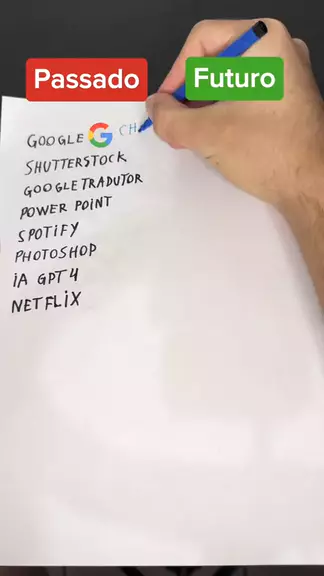 Passado
Futuro
GOOGLE G CH
SHUTTERSTOCK
GOOGLE TRADUTOR
POWER POINT
SPOTiFY
PHOTOSHOP
iA GPT4
NETFLiX